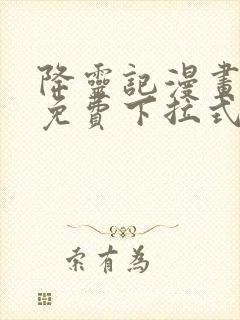 降靈記漫畫
免費下拉式
索有為